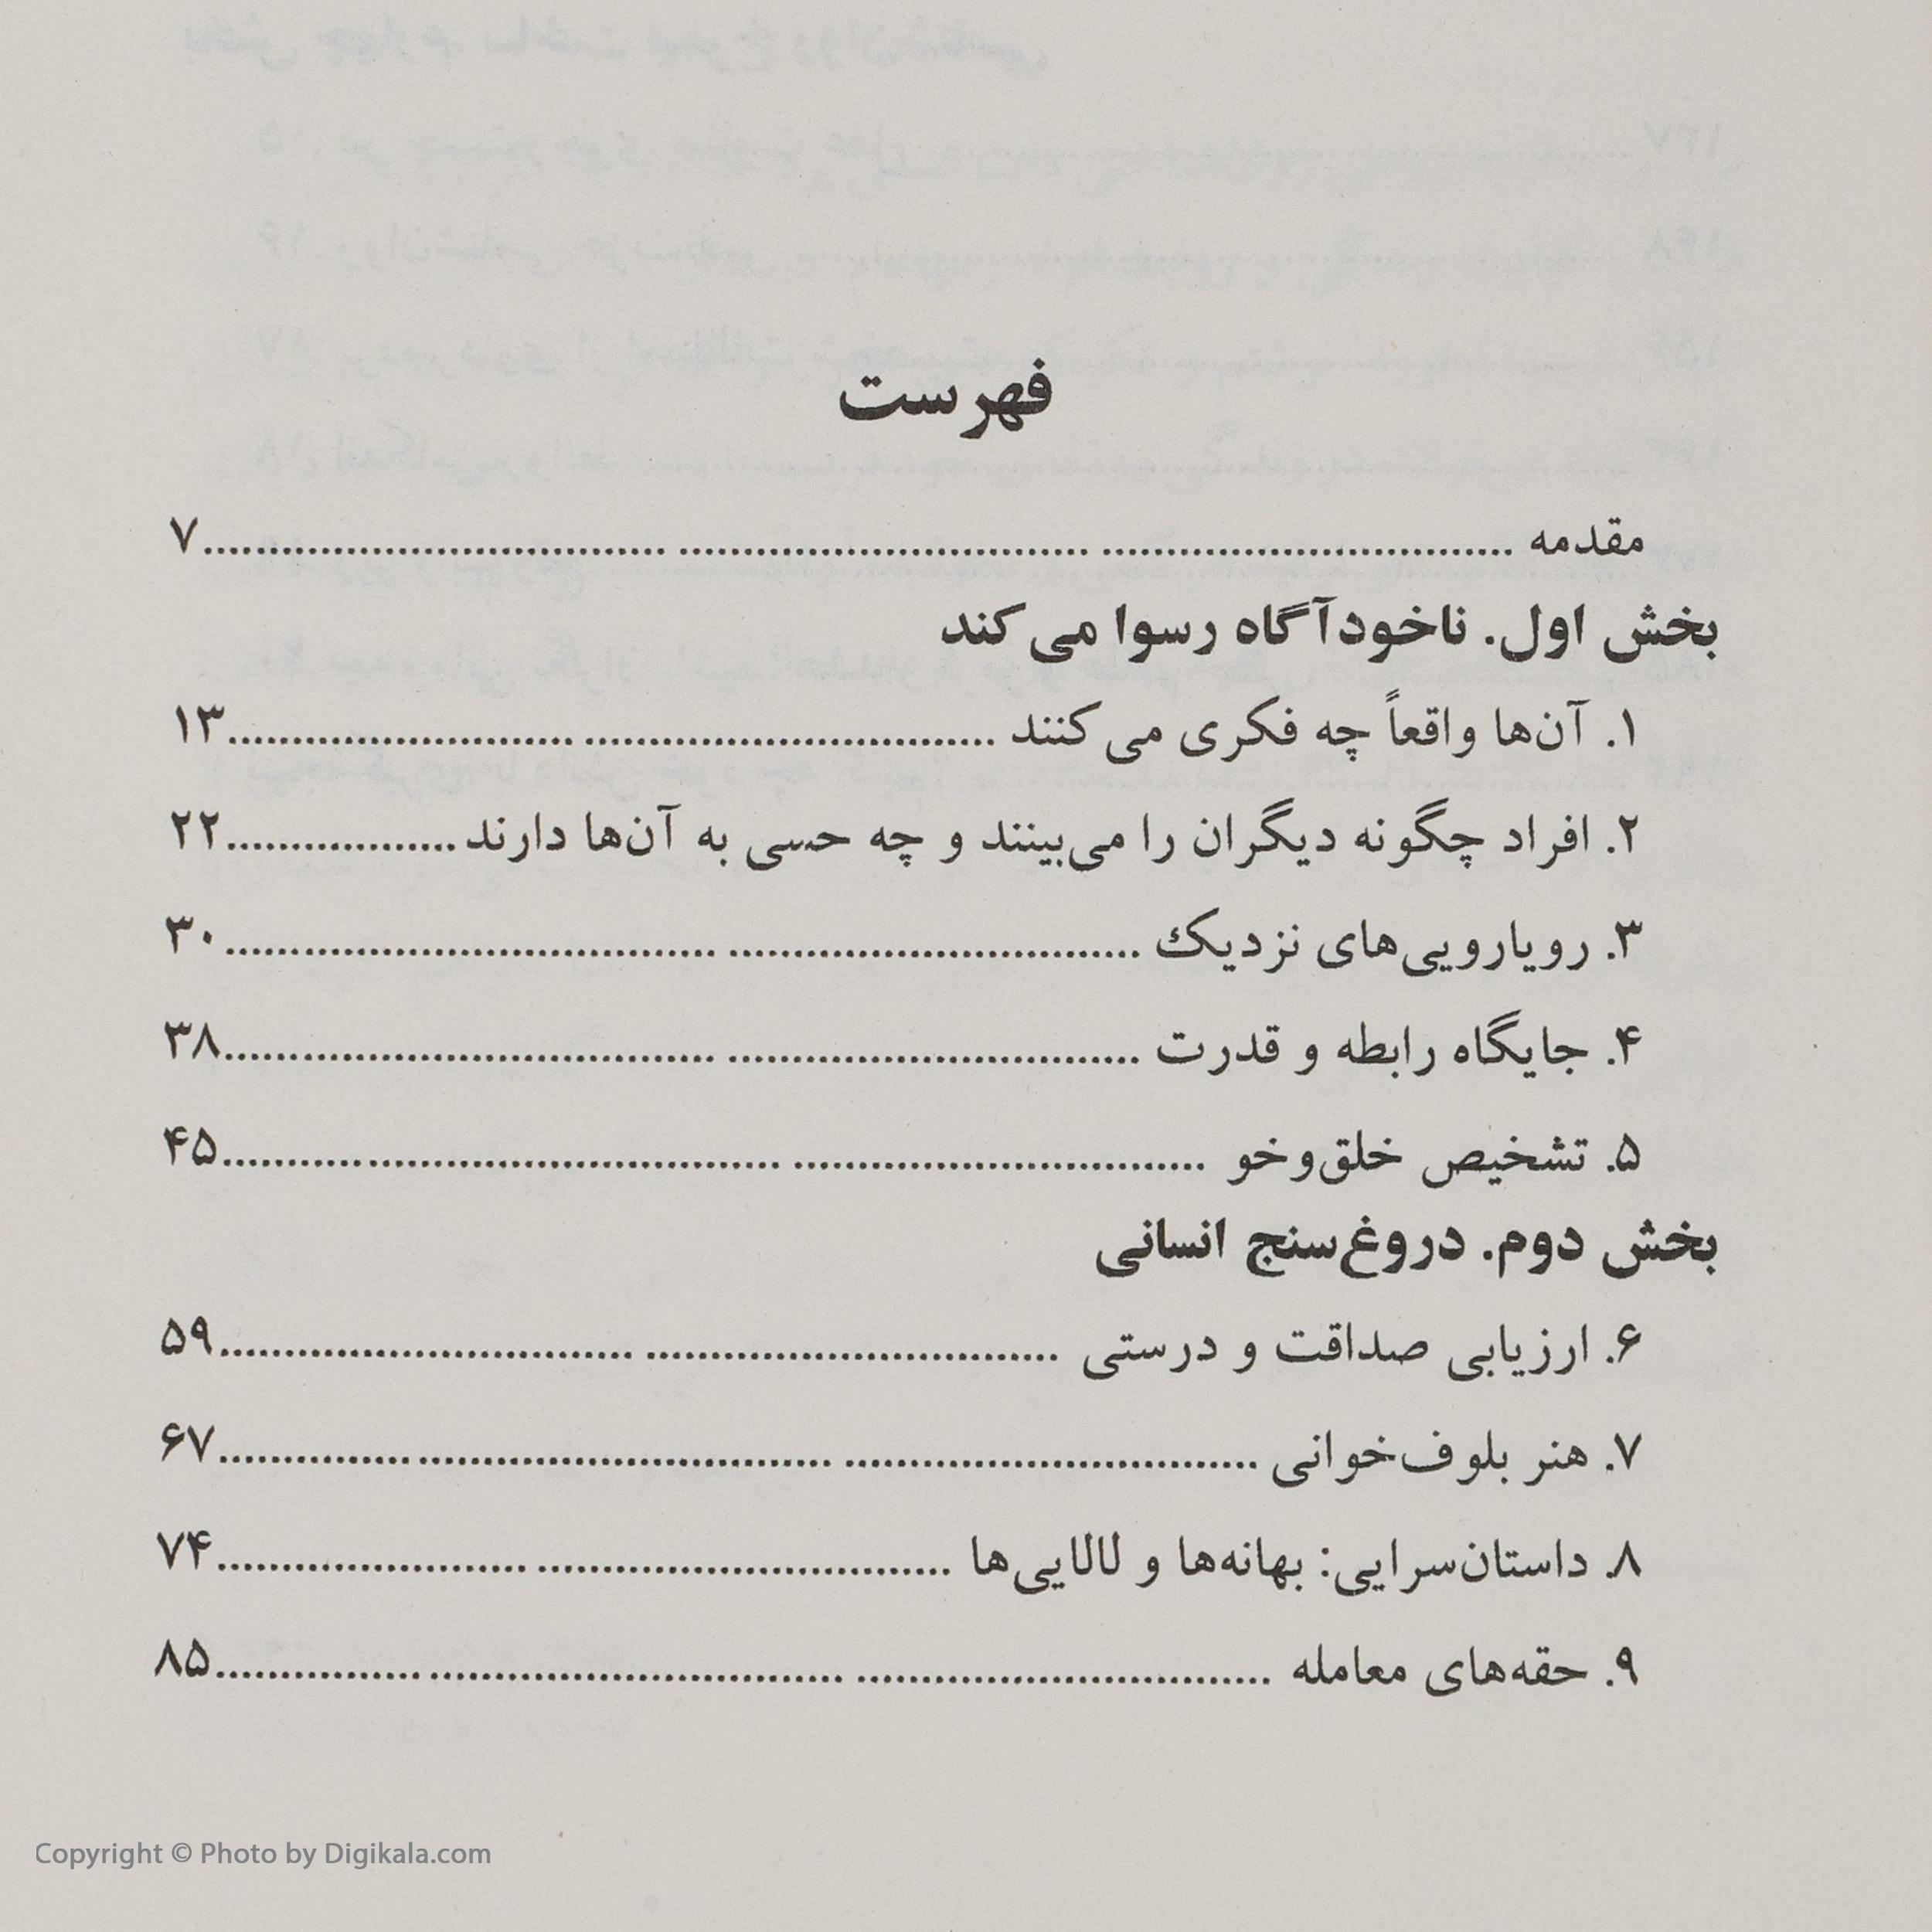 فهرست
مقدمه ........................................................ ۷
بخش اول. ناخودآگاه رسوا می‌کند
۱. آن‌ها واقعاً چه فکری می‌کنند ........................................ ۱۳
۲. افراد چگونه دیگران را می‌بینند و چه حسی به آن‌ها دارند .................. ۲۲
۳. رویارویی‌های نزدیک ........................................ ۳۰
۴. جایگاه رابطه و قدرت ........................................ ۳۸
۵. تشخیص خلق‌وخو ........................................ ۴۵
بخش دوم. دروغ‌سنج انسانی
۶. ارزیابی صداقت و درستی ........................................ ۵۹
۷. هنر بلوف‌خوانی ........................................ ۶۷
۸. داستان‌سرایی: بهانه‌ها و لالایی‌ها ........................................ ۷۴
۹. حقه‌های معامله ........................................ ۸۵
Copyright © Photo by Digikala.com